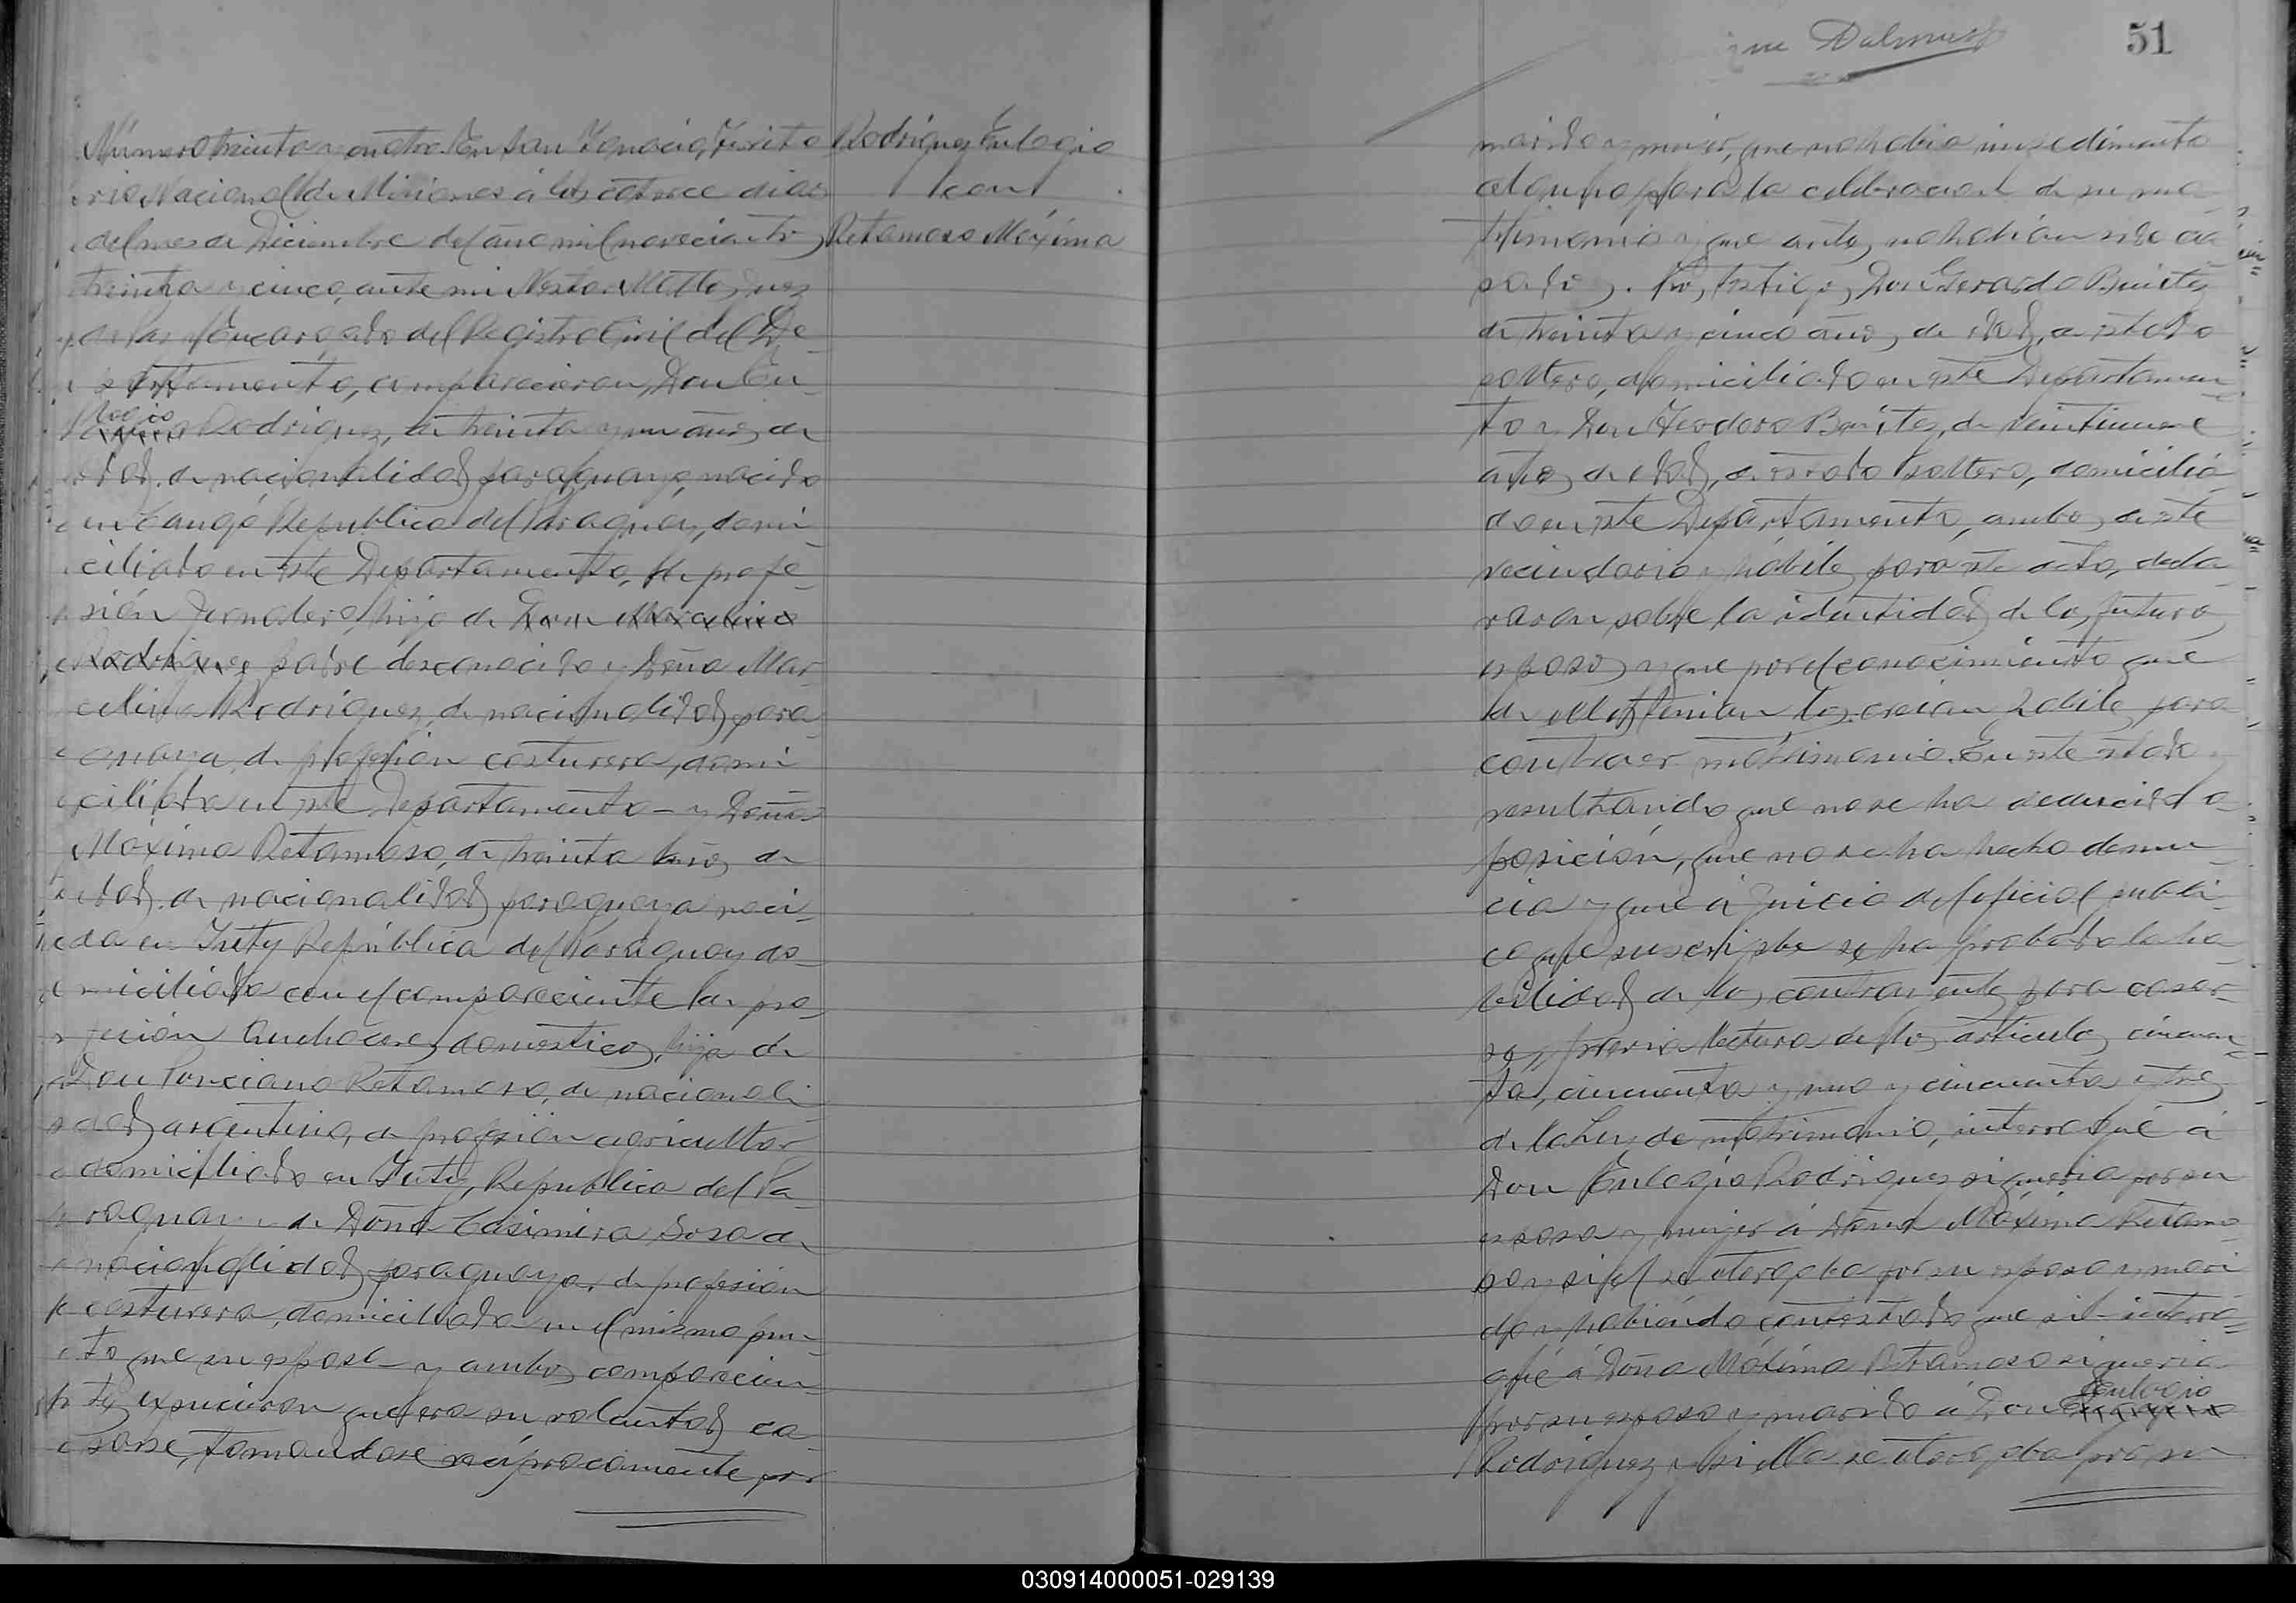 Número treinta y cuatro. En San Ygnacio, Territo
rio Nacional de Misiones á los catorce dias
del mes de Diciembre del año mil novecientos
treinta y cinco, ante mi Nestor Motta, Juez
de Paz y Encargado del Registro Civil del De
partamento, comparecieron, Don Eu
logio
Rodriguez, de treinta y un años de
edad, de nacionalidad paraguaya, nacido
en Caangó República del Paraguay, domi
ciliado en este Departamento, de profe
sión Jornalero, hijo de Don Marcelino
Rodriguez padre desconocido y Doña Mar
celina Rodriguez, de nacionalidad para
guaya, de profesión costurera, domi
ciliada en este Departamento – y Doña
Máxima Retamoso, de treinta años de
edad, de nacionalidad paraguaya naci
da en Yuty República del Paraguay do
miciliada con el compareciente de pro
fesión Quehaceres domesticos, hija de
Don Ponciano Retamoso, de nacionali
dad argentino, de profesión agricultor
domiciliado en Yuty, República del Pa
raguay y de Doña Casimira Sosa de
nacionalidad paraguaya, de profesión
costurera, domiciliada en el mismo pun
to que su esposo – y ambos comparecien
tes expusieron que era su voluntad ca
sarse, tomandose recíprocamente por
Rodriguez Eulogio
con
Retamoso Máxima
51
marido y mujer, que no habia impedimento
alguno para la celebracion de su ma
trimonio y que antes no habian sido ca
sados. Los testigos Don Gerardo Benitez
de treinta y cinco años de edad, de estado
soltero, domiciliado en este Departamen
to y Don Teodoro Benítez, de veintinueve
años de edad, de estado soltero, domicilia
do en este Departamento, ambos de este
vecindario y hábiles para este acto, decla
raron sobre la identidad de los futuros
esposos y que por el conocimiento que
de ellos tenian los creian habiles para
contraer matrimonio. En este estado y
resultando que no se ha deducido o
posición, que no se ha hecho denun
cia y que á juicio del oficial públi
co que suscribe se ha probado la ha
bilidad de los contrayentes para casar
se, previa lectura de los articulos cincuen
ta, cincuenta y uno y cincuenta y tres
de la Ley de matrimonio, interrogué á
Don Eulogio Rodriguez si queria por su
esposa y mujer á Doña Máxima Retamo
so y si él se otorgaba por su esposo y mari
do y habiendo contestado que si – interro
gué á Doña Máxima Retamoso si queria
Eulogio
por su esposo y marido á Don
Rodriguez y si ella se otorgaba por su
030914000051-029139